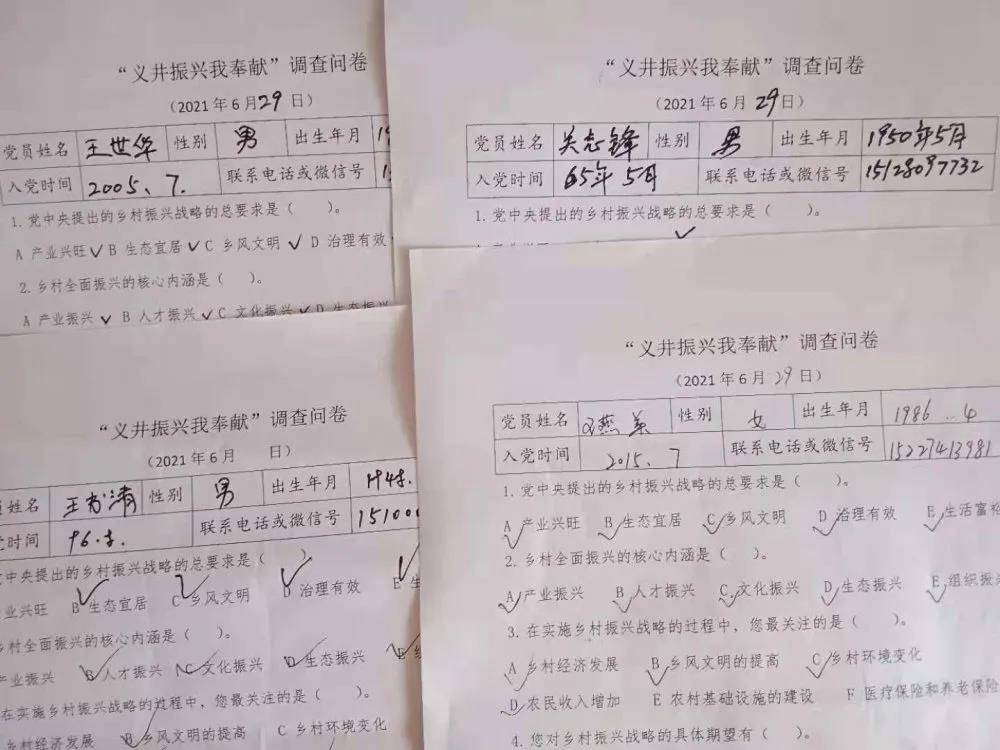 “义井振兴我奉献”调查问卷
（2021 年 6 月 29 日）
党员姓名 王世华 性别 男 出生年月
入党时间 2005、7. 联系电话或微信号
1. 党中央提出的乡村振兴战略的总要求是（ ）。
A 产业兴旺 ✓ B 生态宜居 ✓ C 乡风文明 ✓ D 治理有效
2. 乡村全面振兴的核心内涵是（ ）。
A 产业振兴 ✓ B 人才振兴 ✓ C 文化振兴 ✓ D 生态振兴
“义井振兴我奉献”调查问卷
（2021 年 6 月 29 日）
党员姓名 关志锋 性别 男 出生年月 1950年5月
入党时间 65年5月 联系电话或微信号 15128097732
1. 党中央提出的乡村振兴战略的总要求是（ ）。
“义井振兴我奉献”调查问卷
（2021 年 6 月 日）
员姓名 王书清 性别 男 出生年月 1948.
党时间 96. 联系电话或微信号 151000
党中央提出的乡村振兴战略的总要求是（ ）。
业兴旺 B 生态宜居 C 乡风文明 D 治理有效 E 生
乡村全面振兴的核心内涵是（ ）。
产业振兴 B 人才振兴 C 文化振兴 D 生态振兴 E
在实施乡村振兴战略的过程中，您最关注的是（ ）。
乡村经济发展 B 乡风文明的提高 C 乡村环境变化
“义井振兴我奉献”调查问卷
（2021 年 6 月 29 日）
党员姓名 燕 性别 女 出生年月 1986..4
入党时间 2015、7 联系电话或微信号 15227413981
1. 党中央提出的乡村振兴战略的总要求是（ ）。
A 产业兴旺 B 生态宜居 C 乡风文明 D 治理有效 E 生活富裕
2. 乡村全面振兴的核心内涵是（ ）。
A 产业振兴 B 人才振兴 C 文化振兴 D 生态振兴 E 组织振兴
3. 在实施乡村振兴战略的过程中，您最关注的是（ ）。
A 乡村经济发展 B 乡风文明的提高 C 乡村环境变化
D 农民收入增加 E 农村基础设施的建设 F 医疗保险和养老保险
4. 您对乡村振兴战略的具体期望有（ ）。